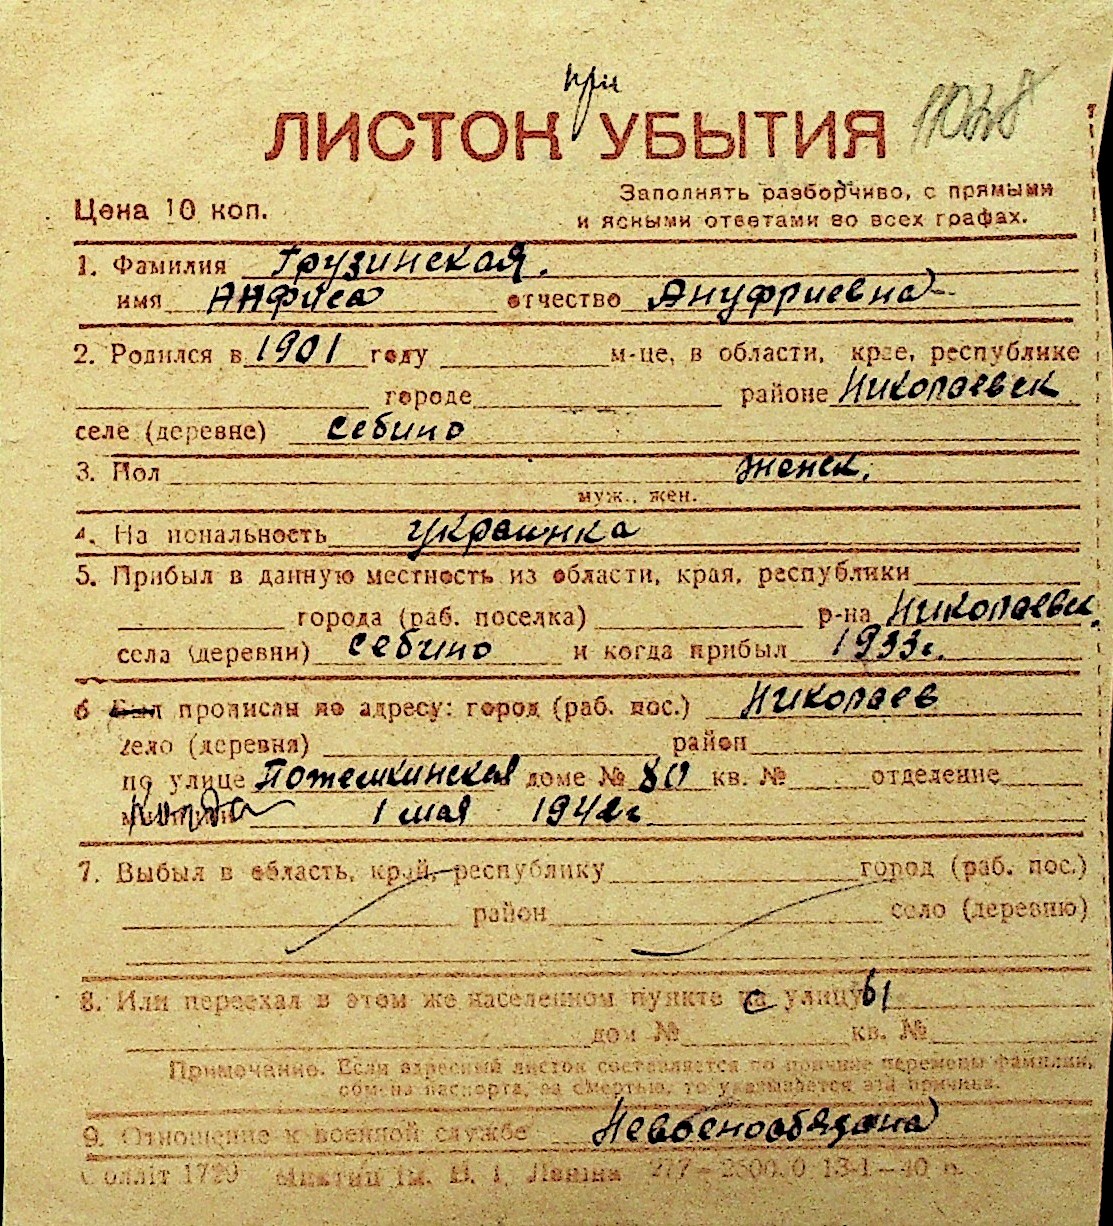 при
ЛИСТОК УБЫТИЯ 11038
Цена 10 коп.
Заполнять разборчиво, с прямыми
и ясными ответами во всех графах.
1. Фамилия Грузинская.
имя Анфиса отчество Ануфриевна
2. Родился в 1901 году м-це, в области, крае, республике
городе районе Николаевск
селе (деревне) Себино
3. Пол женск.
муж., жен.
4. Национальность украинка
5. Прибыл в данную местность из области, края, республики
города (раб. поселка) р-на Николаевск.
села (деревни) Себино и когда прибыл 1933г.
6 Был прописан по адресу: город (раб. пос.) Николаев
село (деревня) район
по улице Потемкинская доме № 80 кв. № отделение
милиции Когда 1 мая 1942г
7. Выбыл в область, край, республику город (раб. пос.)
район село (деревню)
8. Или переехал в этом же населенном пункте на с улицу ы
дом № кв. №
Примечание. Если адресный листок составляется по причине перемены фамилии,
обмена паспорта, за смертью, то указывается эта причина.
9. Отношение к военной службе Невоенообязана
Облліт 1729 Миктип ім. В. І. Леніна 277—25000 13-I—40 р.